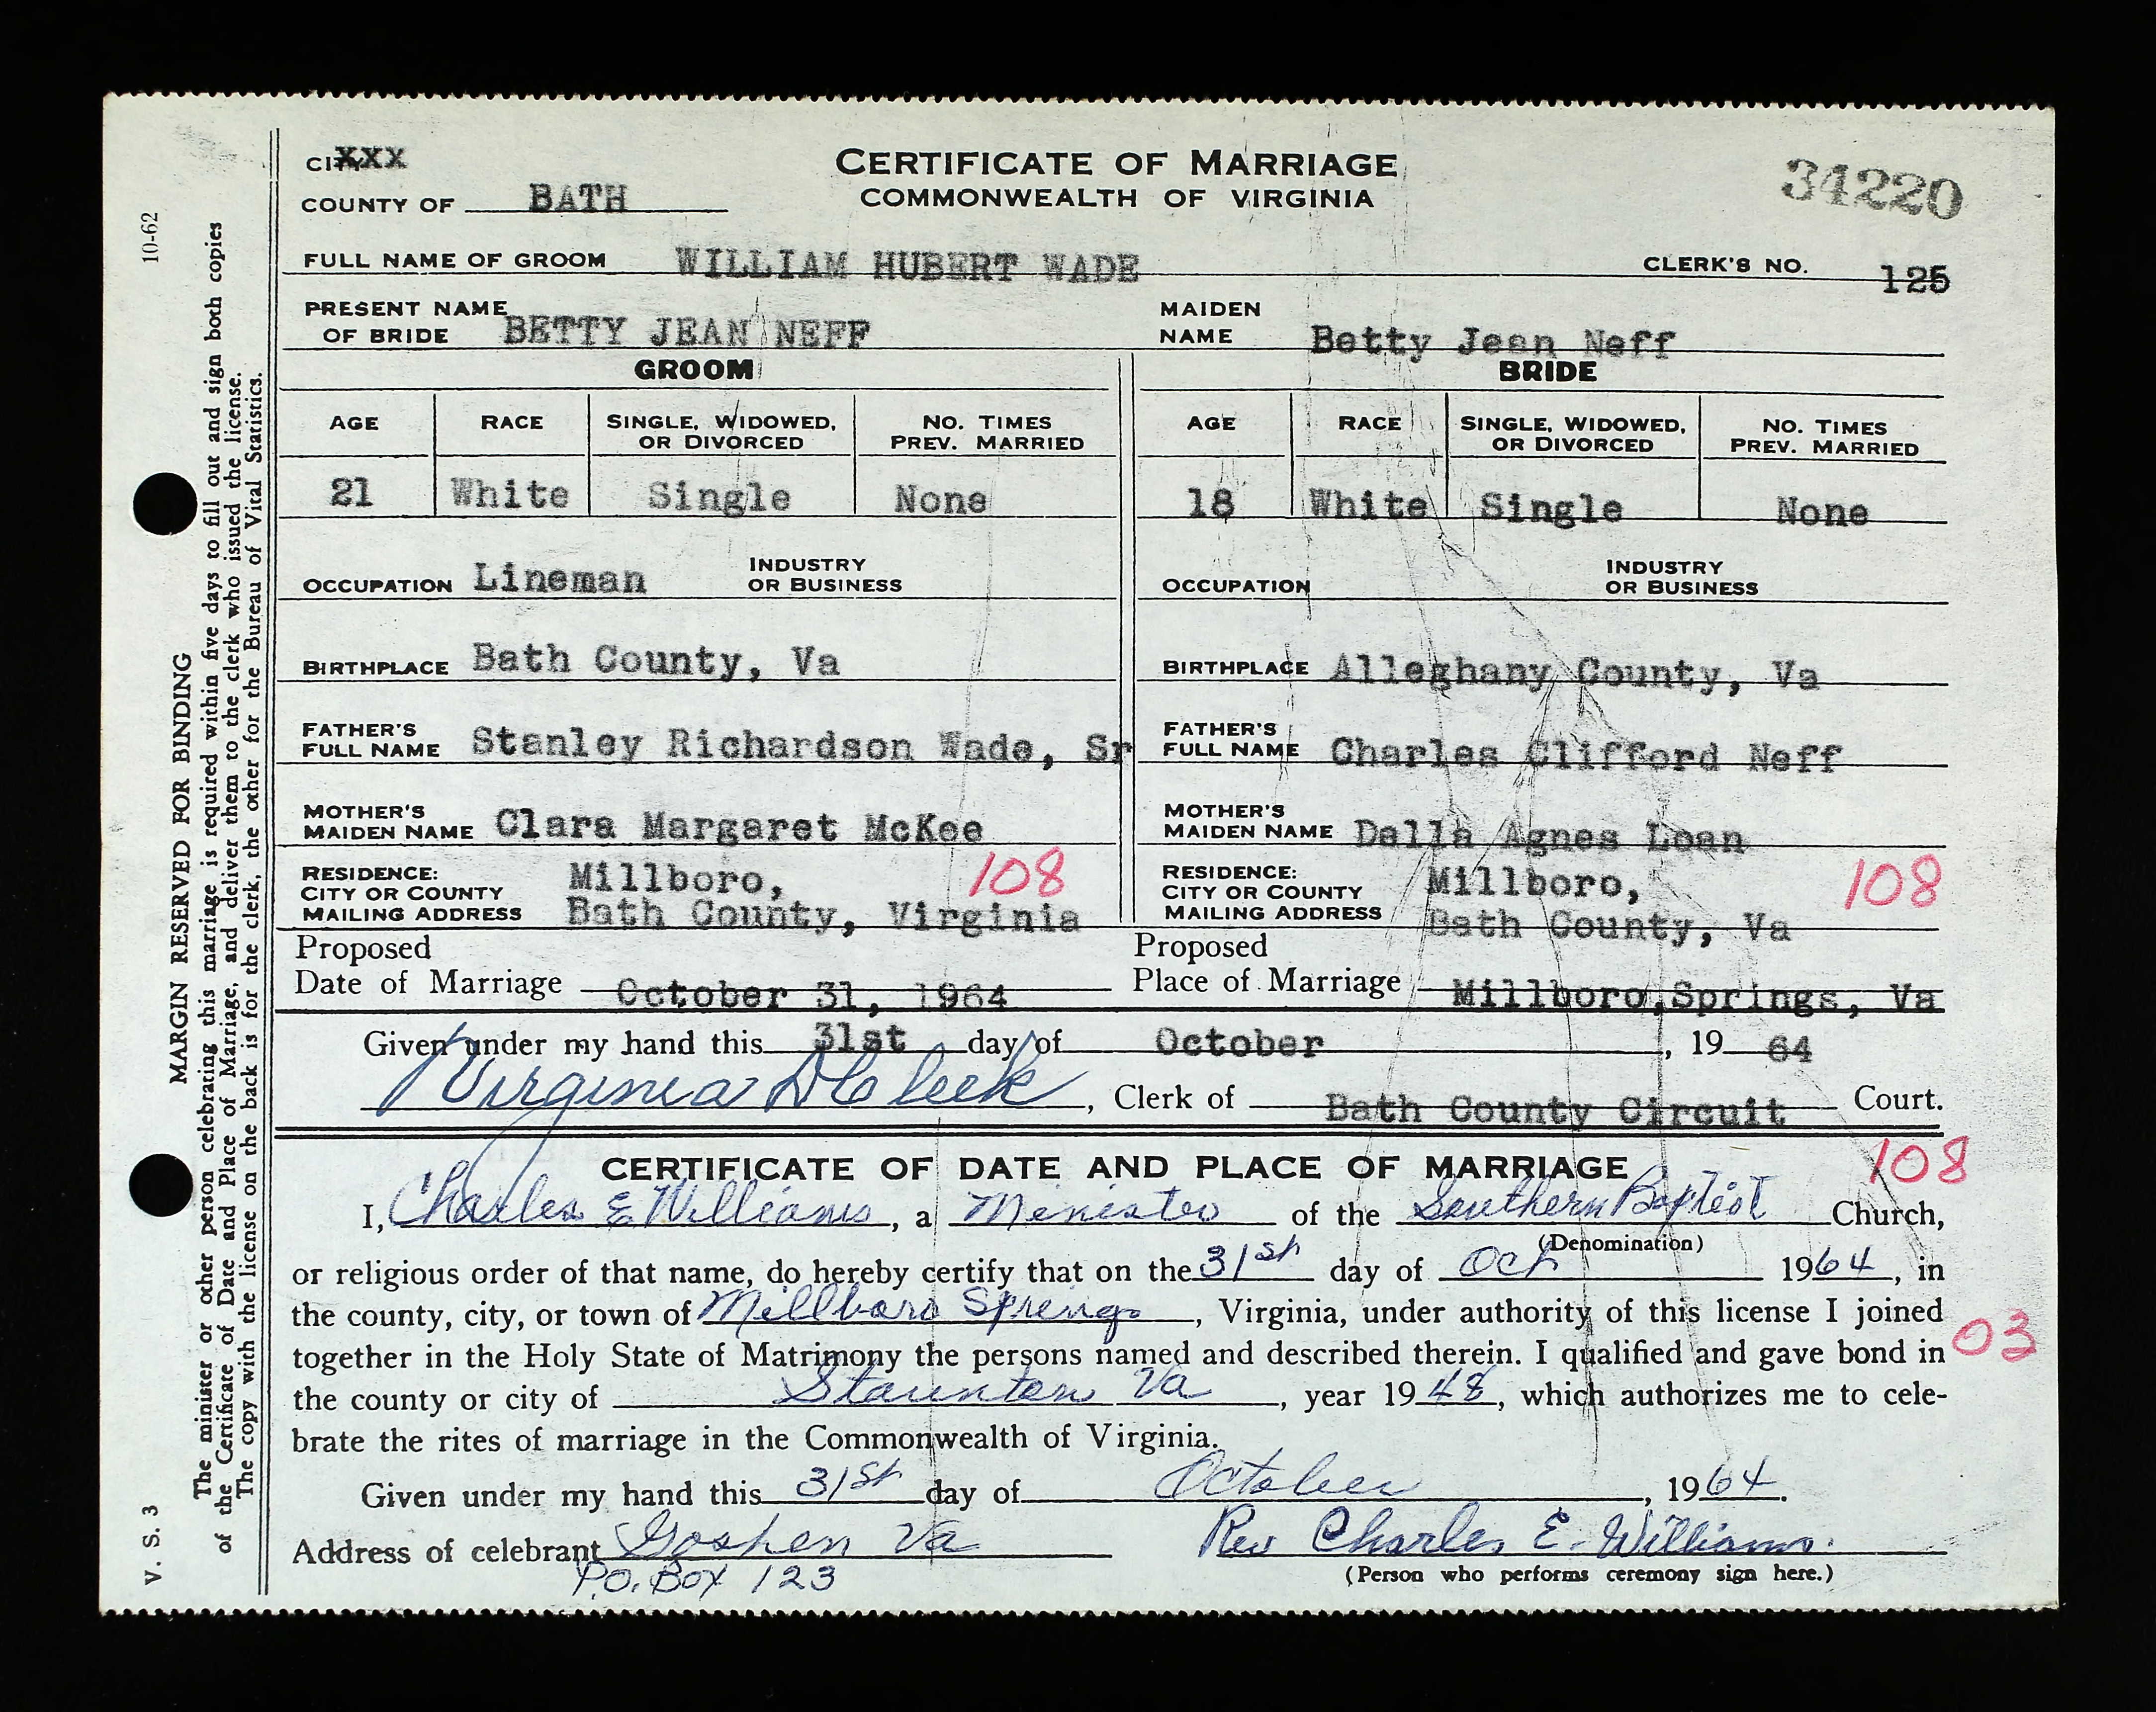 CITY XXX
CERTIFICATE OF MARRIAGE
COMMONWEALTH OF VIRGINIA
34220
COUNTY OF BATH
FULL NAME OF GROOM WILLIAM HUBERT WADE CLERK'S NO. 125
PRESENT NAME OF BRIDE BETTY JEAN NEFF MAIDEN NAME Betty Jean Neff
GROOM BRIDE
AGE RACE SINGLE, WIDOWED, OR DIVORCED NO. TIMES PREV. MARRIED AGE RACE SINGLE, WIDOWED, OR DIVORCED NO. TIMES PREV. MARRIED
21 White Single None 18 White Single None
OCCUPATION Lineman INDUSTRY OR BUSINESS OCCUPATION INDUSTRY OR BUSINESS
BIRTHPLACE Bath County, Va BIRTHPLACE Alleghany County, Va
FATHER'S FULL NAME Stanley Richardson Wade, Sr FATHER'S FULL NAME Charles Clifford Neff
MOTHER'S MAIDEN NAME Clara Margaret McKee MOTHER'S MAIDEN NAME Della Agnes Loan
RESIDENCE: CITY OR COUNTY MAILING ADDRESS Millboro, Bath County, Virginia 108 RESIDENCE: CITY OR COUNTY MAILING ADDRESS Millboro, Bath County, Va 108
Proposed Date of Marriage October 31, 1964 Proposed Place of Marriage Millboro Springs, Va
Given under my hand this 31st day of October, 19 64
Virginia D Cleek, Clerk of Bath County Circuit Court.
CERTIFICATE OF DATE AND PLACE OF MARRIAGE 108
I, Charles E Williams, a Minister of the Southern Baptist Church,
(Denomination)
or religious order of that name, do hereby certify that on the 31st day of Oct 1964, in
the county, city, or town of Millboro Springs, Virginia, under authority of this license I joined
together in the Holy State of Matrimony the persons named and described therein. I qualified and gave bond in 03
the county or city of Staunton Va, year 1948, which authorizes me to cele-
brate the rites of marriage in the Commonwealth of Virginia.
Given under my hand this 31st day of October, 1964.
Address of celebrant Goshen Va Rev Charles E. Williams.
P.O. Box 123 (Person who performs ceremony sign here.)
10-62
MARGIN RESERVED FOR BINDING
V. S. 3
The minister or other person celebrating this marriage is required within five days to fill out and sign both copies
of the Certificate of Date and Place of Marriage, and deliver them to the clerk who issued the license.
The copy with the license on the back is for the clerk, the other for the Bureau of Vital Statistics.